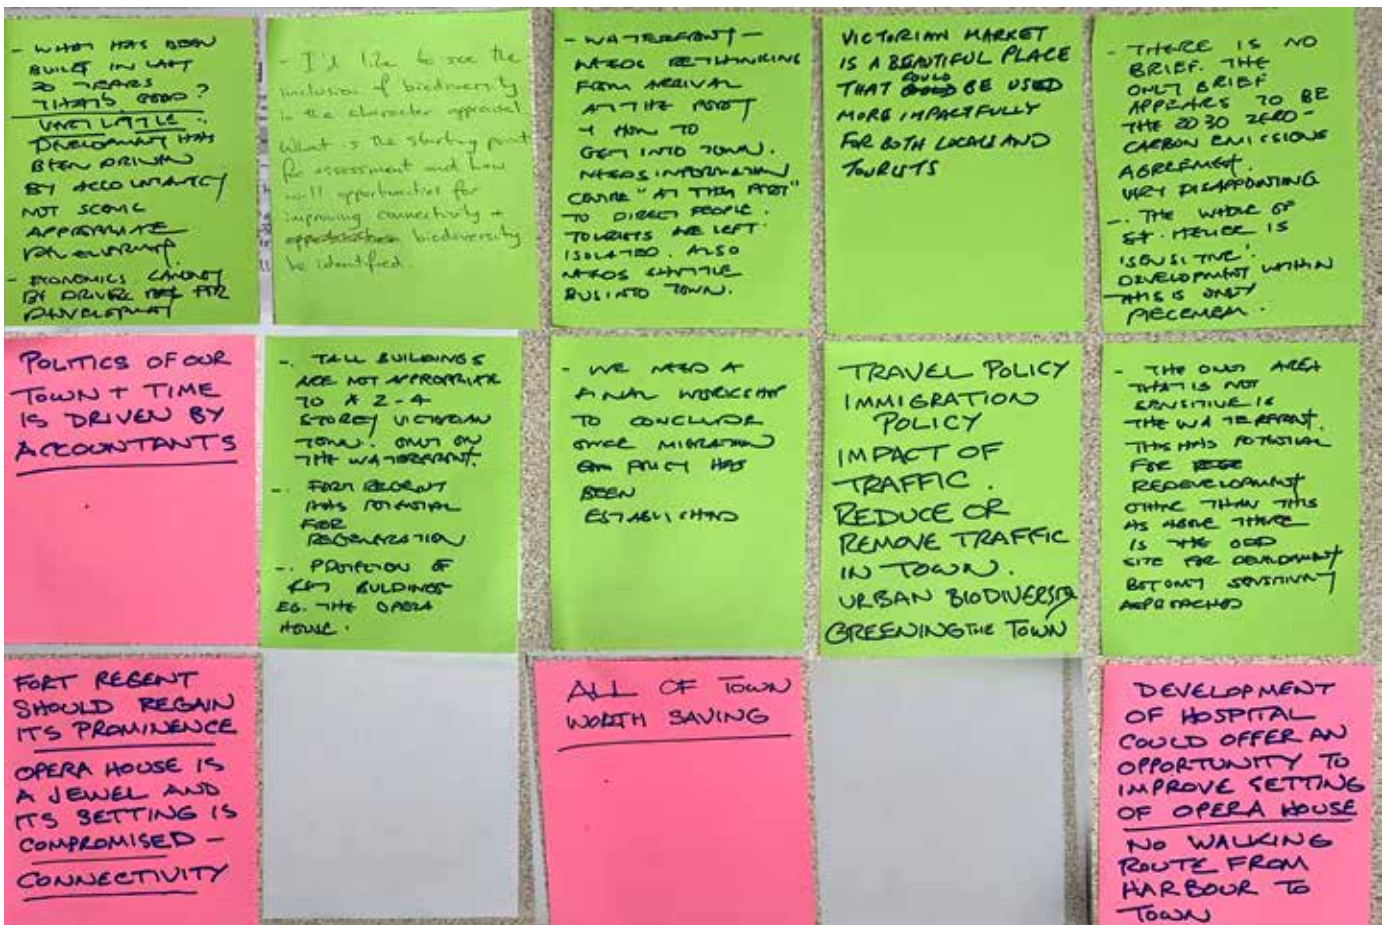 - WHAT HAS BEEN
BUILT IN LAST
20 YEARS
THAT'S GOOD?
VERY LITTLE.
DEVELOPMENT HAS
BEEN DRIVEN
BY ACCOUNTANCY
NOT SCENIC
APPROPRIATE
DEVELOPMENT.
- ECONOMICS CANNOT
BE DRIVER FOR
DEVELOPMENT
- I'd like to see the
inclusion of biodiversity
in the character appraisal.
What is the starting point
for assessment and how
will opportunities for
improving connectivity +
biodiversity
be identified.
- WATERFRONT -
NEEDS RETHINKING
FROM ARRIVAL
AT THE PORT
& HOW TO
GET INTO TOWN.
NEEDS INFORMATION
CENTRE "AT THE PORT"
TO DIRECT PEOPLE.
TOURISTS ARE LEFT
ISOLATED. ALSO
NEEDS SHUTTLE
BUS INTO TOWN.
VICTORIAN MARKET
IS A BEAUTIFUL PLACE
THAT COULD BE USED
MORE IMPACTFULLY
FOR BOTH LOCALS AND
TOURISTS
- THERE IS NO
BRIEF. THE
ONLY BRIEF
APPEARS TO BE
THE 2030 ZERO-
CARBON EMISSIONS
AGREEMENT.
VERY DISAPPOINTING
-. THE WHOLE OF
ST. HELIER IS
'SENSITIVE'.
DEVELOPMENT WITHIN
THIS IS ONLY
PIECEMEAL.
POLITICS OF OUR
TOWN + TIME
IS DRIVEN BY
ACCOUNTANTS
-. TALL BUILDINGS
ARE NOT APPROPRIATE
TO A 2-4
STOREY VICTORIAN
TOWN. ONLY ON
THE WATERFRONT.
-. FORT REGENT
HAS POTENTIAL
FOR
REGENERATION
-. PROTECTION OF
KEY BUILDINGS
EG. THE OPERA
HOUSE.
- WE NEED A
FINAL WORKSHOP
TO CONCLUDE
ONCE MIGRATION
POLICY HAS
BEEN
ESTABLISHED
TRAVEL POLICY
IMMIGRATION
POLICY
IMPACT OF
TRAFFIC.
REDUCE OR
REMOVE TRAFFIC
IN TOWN.
URBAN BIODIVERSITY
GREENING THE TOWN
- THE ONLY AREA
THAT IS NOT
SENSITIVE IS
THE WATERFRONT.
THIS HAS POTENTIAL
FOR
REDEVELOPMENT
OTHER THAN THIS
AS ABOVE THERE
IS THE ODD
SITE FOR DEVELOPMENT
BUT ONLY SENSITIVELY
APPROACHED
FORT REGENT
SHOULD REGAIN
ITS PROMINENCE
OPERA HOUSE IS
A JEWEL AND
ITS SETTING IS
COMPROMISED -
CONNECTIVITY
ALL OF TOWN
WORTH SAVING
DEVELOPMENT
OF HOSPITAL
COULD OFFER AN
OPPORTUNITY TO
IMPROVE SETTING
OF OPERA HOUSE
NO WALKING
ROUTE FROM
HARBOUR TO
TOWN